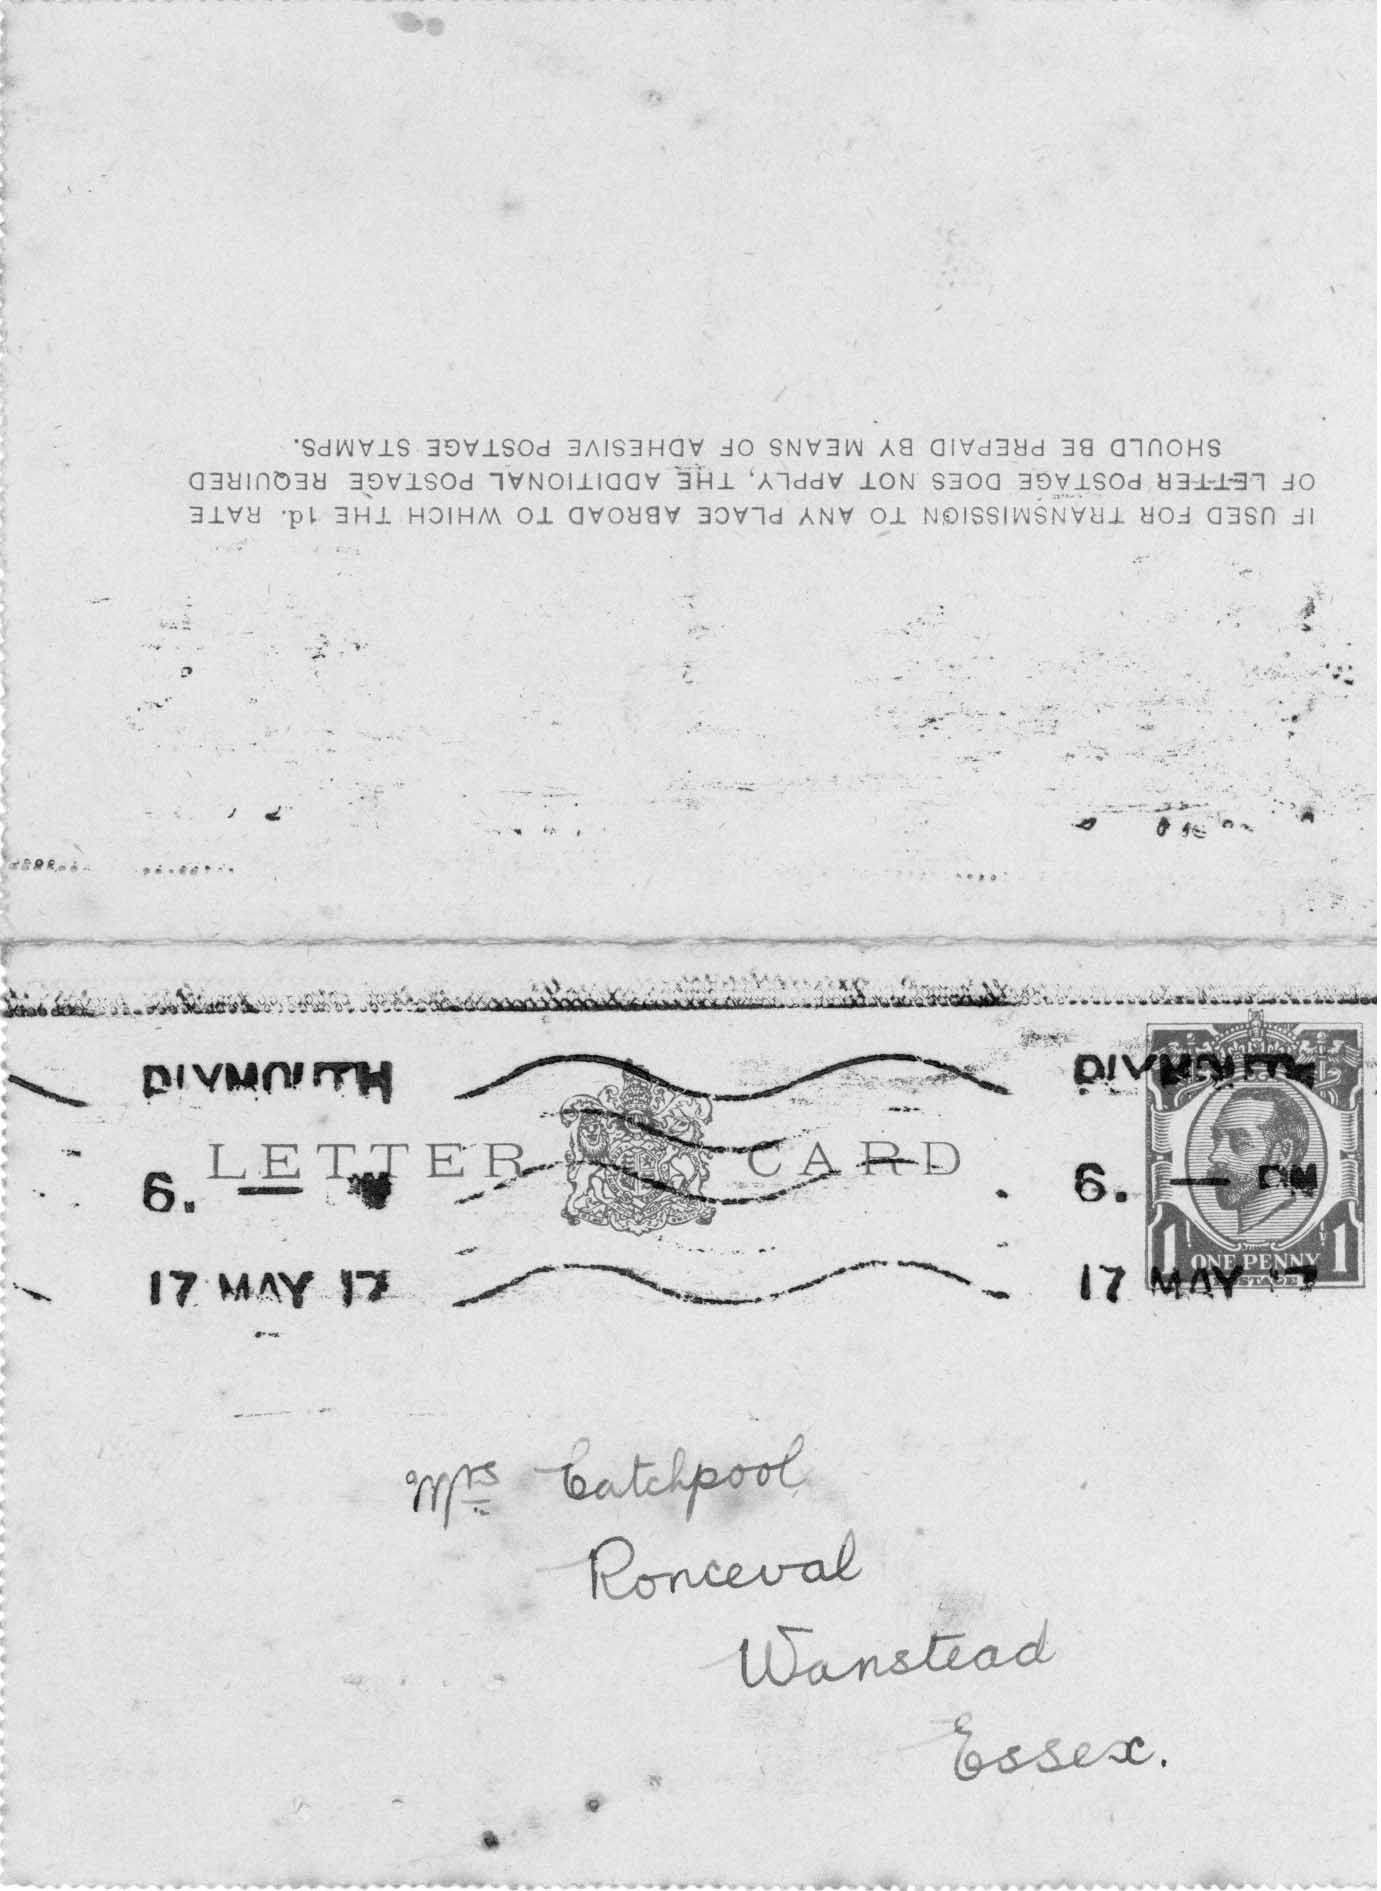 IF USED FOR TRANSMISSION TO ANY PLACE ABROAD TO WHICH THE 1d. RATE
OF LETTER POSTAGE DOES NOT APPLY, THE ADDITIONAL POSTAGE REQUIRED
SHOULD BE PREPAID BY MEANS OF ADHESIVE POSTAGE STAMPS.
PLYMOUTH PLYMOUTH
LETTER CARD
6. — PM 6. — PM
17 MAY 17 17 MAY 17
1 ONE PENNY 1
POSTAGE
Mrs Catchpool
Ronceval
Wanstead
Essex.